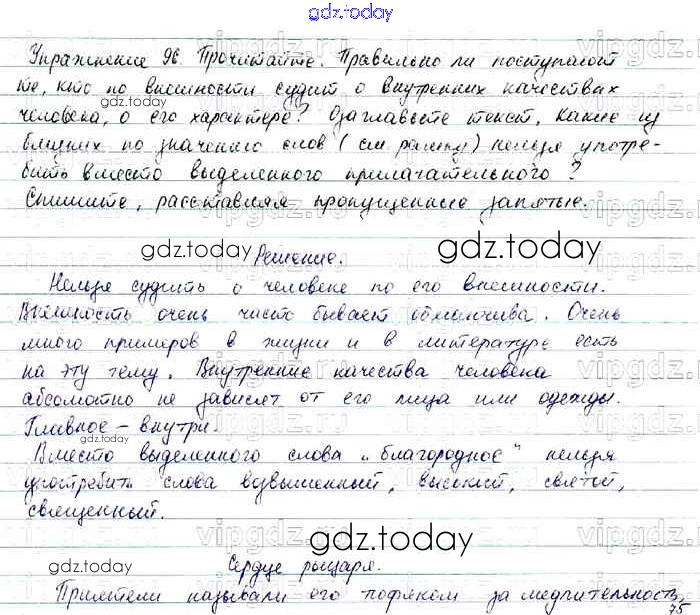 gdz.today
Упражнение 96. Прочитайте. Правильно ли поступают
те, кто по внешности судит о внутренних качествах
gdz.today
человека, о его характере? Озаглавьте текст. Какие из
близких по значению слов (см рамку) нельзя употре-
бить вместо выделенного прилагательного?
Спишите, расставляя пропущенные запятые.
gdz.today
Решение.
gdz.today
Нельзя судить о человеке по его внешности.
Внешность очень часто бывает обманчива. Очень
много примеров в жизни и в литературе есть
на эту тему. Внутренние качества человека
абсолютно не зависят от его лица или одежды.
Главное - внутри.
gdz.today
Вместо выделенного слова „благородное" нельзя
употребить слова возвышенный, высокий, святой,
священный.
gdz.today
Сердце рыцаря.
Приятели называли его тюфяком за медлительность
75